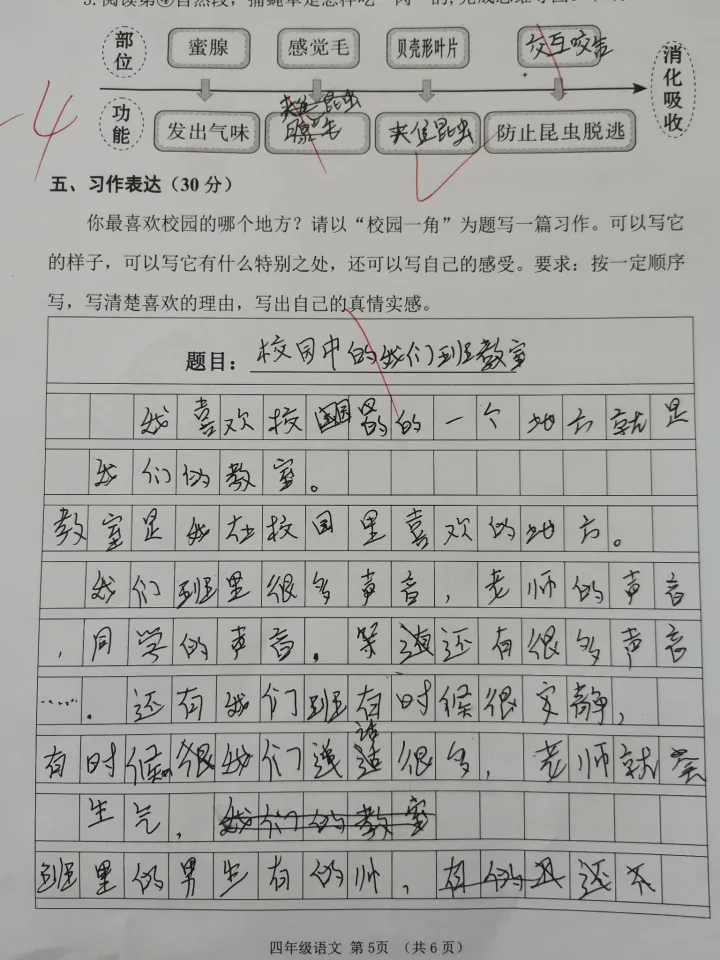 5. 阅读第④自然段，捕蝇草是怎样吃
部位 蜜腺 感觉毛 贝壳形叶片 交互咬合 消化吸收
-4
夹住昆虫
功能 发出气味 夹住昆虫 防止昆虫脱逃
五、习作表达（30分）
你最喜欢校园的哪个地方？请以“校园一角”为题写一篇习作。可以写它
的样子，可以写它有什么特别之处，还可以写自己的感受。要求：按一定顺序
写，写清楚喜欢的理由，写出自己的真情实感。
题目：校园中的我们班教室
我喜欢校园的一个地方就是
我们的教室。
教室是我在校园里喜欢的地方。
我们班里很多声音，老师的声音
，同学的声音。等还有很多声音
……。还有我们班有时候很安静，
有时候很我们说话很多，老师就会
生气，我们的教室
班里的男生有的帅，有的还不
四年级语文 第5页 （共6页）